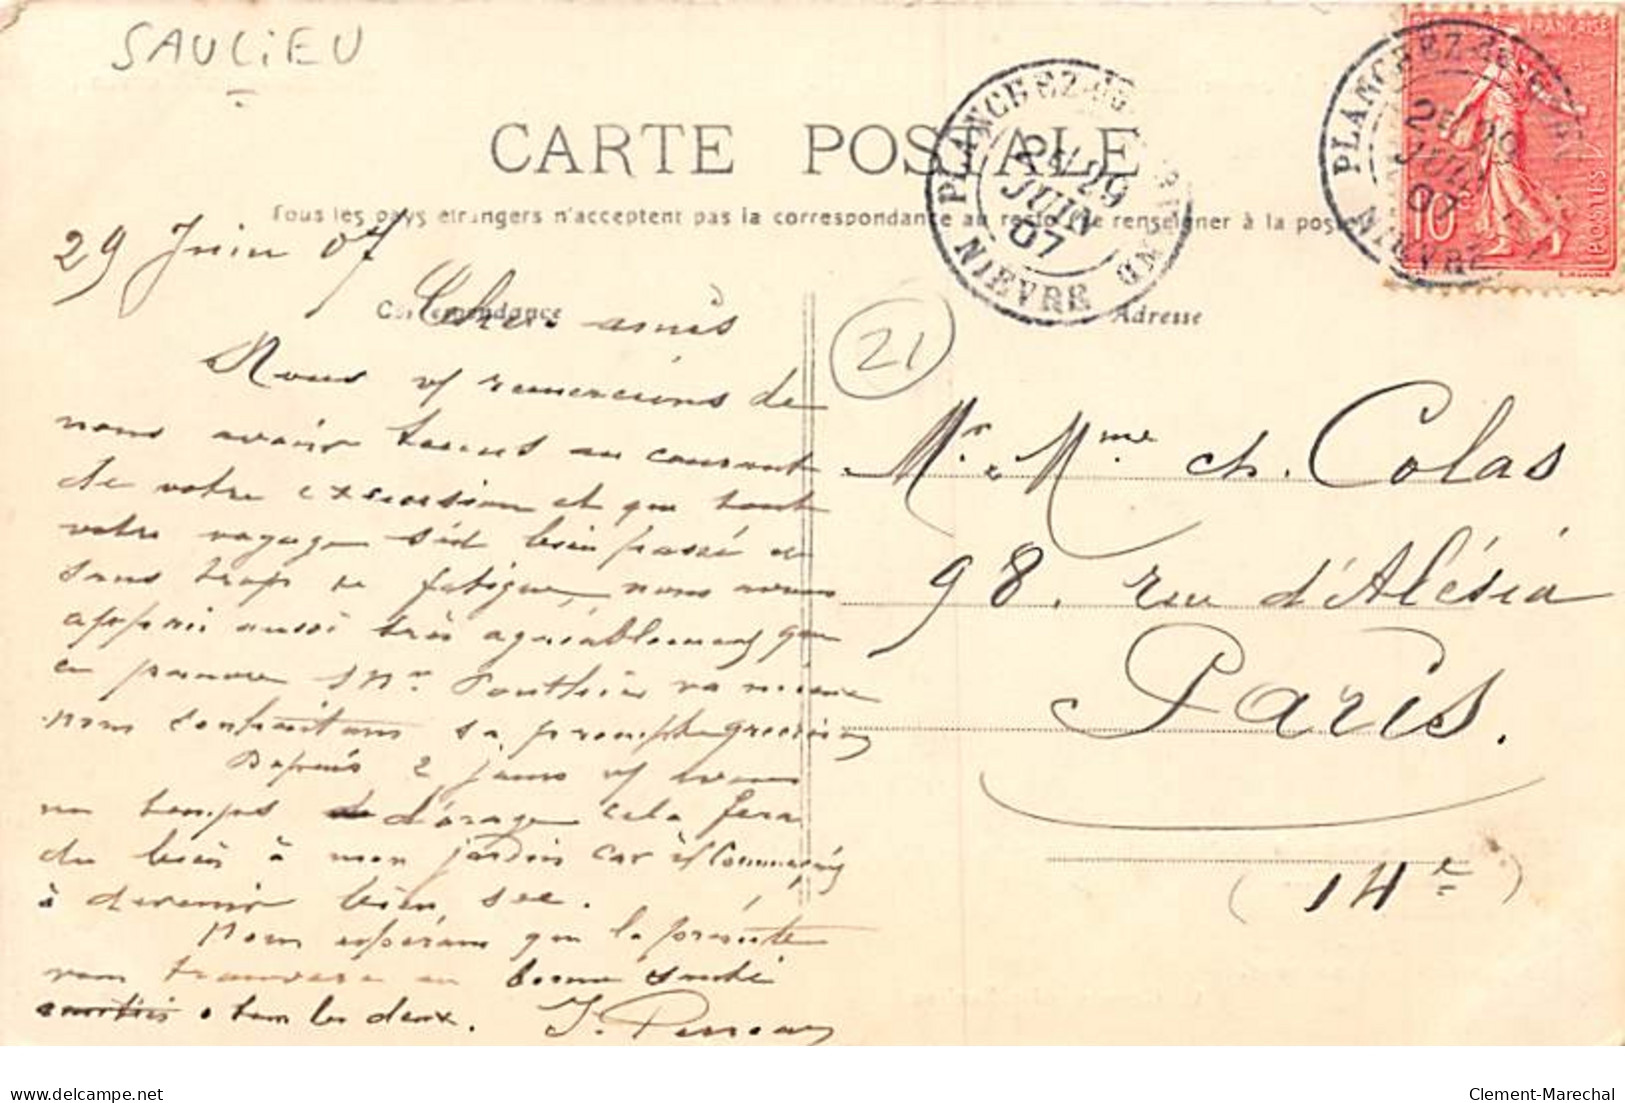 SAULIEU
CARTE POSTALE
Tous les pays étrangers n'acceptent pas la correspondance au recto. Se renseigner à la poste
PLANCHEZ-du- NIEVRE
2E/29
JUIN
07
PLANCHEZ-du- NIEVRE
2E 29
JUIN
07
FRANÇAISE
10
POSTES
29 Juin 07
Correspondance
Adresse
Chers amis
21
Nous vs remercions de
nous avoir tenus au courant
de votre excursion et que tout
votre voyage s'est bien passé et
sans trop de fatigue, nous avons
appris aussi très agréablement que
ce pauvre Mr Ponthier va mieux
nous souhaitons sa prompte guérison
Depuis 2 jours ns avons
un temps d'orage cela fera
du bien à mon jardin car il commençait
à devenir bien sec.
Nous espérons que la présente
vous trouvera en bonne santé
tous les deux.
Mr & Mme Ch. Colas
98. rue d'Alésia
Paris.
(14e)
delcampe.net
Clement-Marechal